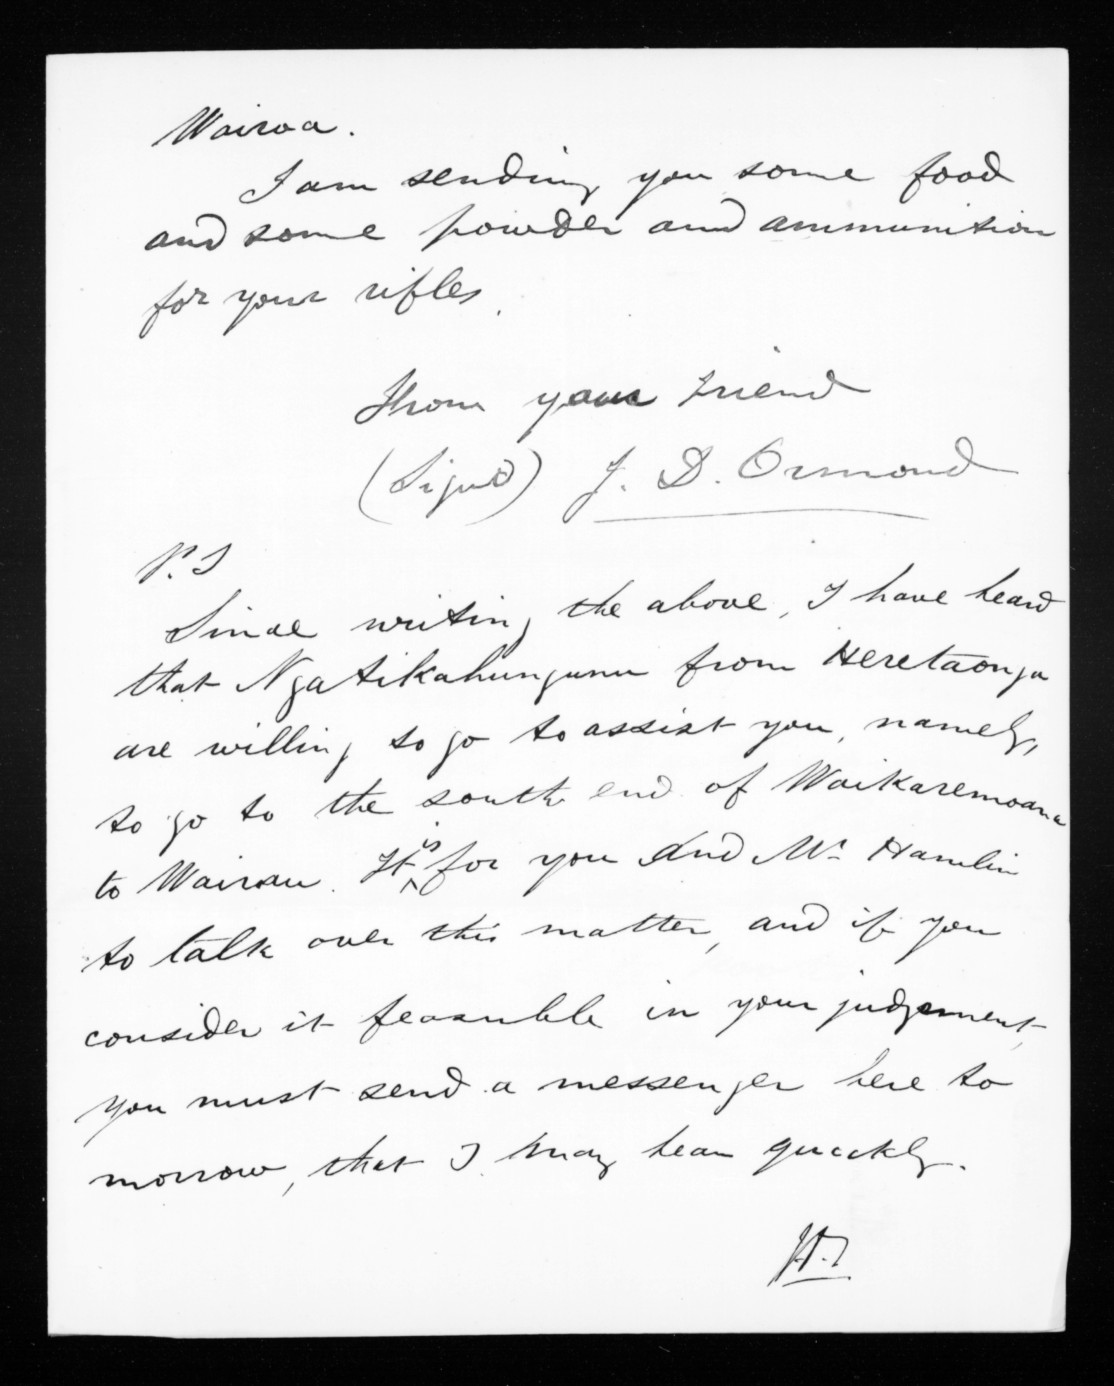 Wairoa.
I am sending you some food
and some powder and ammunition
for your rifles.
From your friend
(Signed) J. D. Ormond
P.S
Since writing the above, I have heard
that Ngatikahungunu from Heretaonga
are willing to go to assist you, namely,
to go to the south end of Waikaremoana
to Wairau. It is for you and Mr Hamlin
to talk over this matter, and if you
consider it feasable in your judgement,
you must send a messenger here to
morrow, that I may hear quickly.